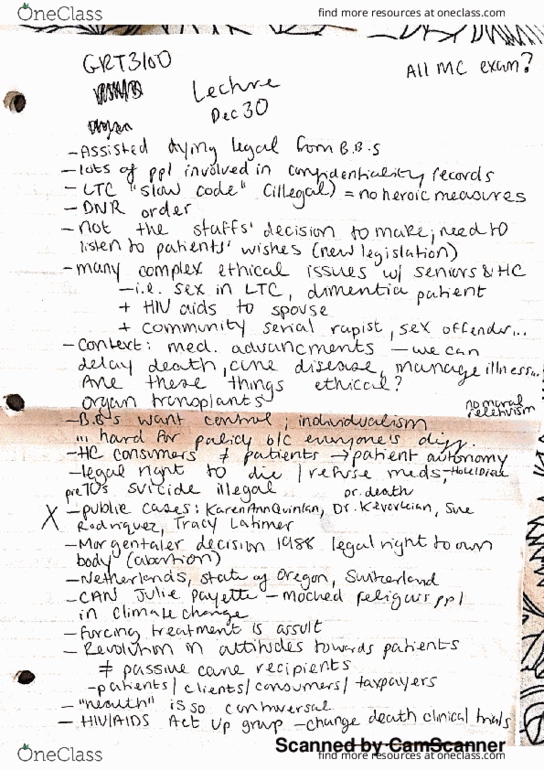 OneClass
find more resources at oneclass.com
GRT3100
All MC exam?
Lecture
Dec 30
- Assisted dying legal from B.B.s
- lots of ppl involved in confidentiality records
- LTC "slow code" (illegal) = no heroic measures
- DNR order
- not the staffs' decision to make; need to
listen to patients' wishes (new legislation)
- many complex ethical issues w/ seniors & HC
- i.e. sex in LTC, dimentia patient
+ HIV aids to spouse
+ community serial rapist, sex offender...
- Context: med. advancments - we can
delay death, cure disease, manage illness..
Are these things ethical?
organ transplants
no moral
relativism
- B.B's want control; individualism
... hard for policy b/c everyone's diff.
- HC consumers ≠ patients → patient autonomy
- legal right to die / refuse meds,
pre 70s suicide illegal
Dr. death
X - public cases: Karen Ann Quinlan, Dr. Kevorkian, Sue
Rodriquez, Tracy Latimer
- Morgentaler decision 1988 legal right to own
body (abortion)
- Netherlands, state of Oregon, Switherland
- CAN Julie Payette - mocked religious ppl
in climate change
- Forcing treatment is assult
- Revolution in attitudes towards patients
≠ passive care recipients
- patients / clients / consumers / taxpayers
- "health" is so contraversal
- HIV/AIDS Act Up group - change death clinical trials
Scanned by CamScanner
OneClass
find more resources at oneclass.com